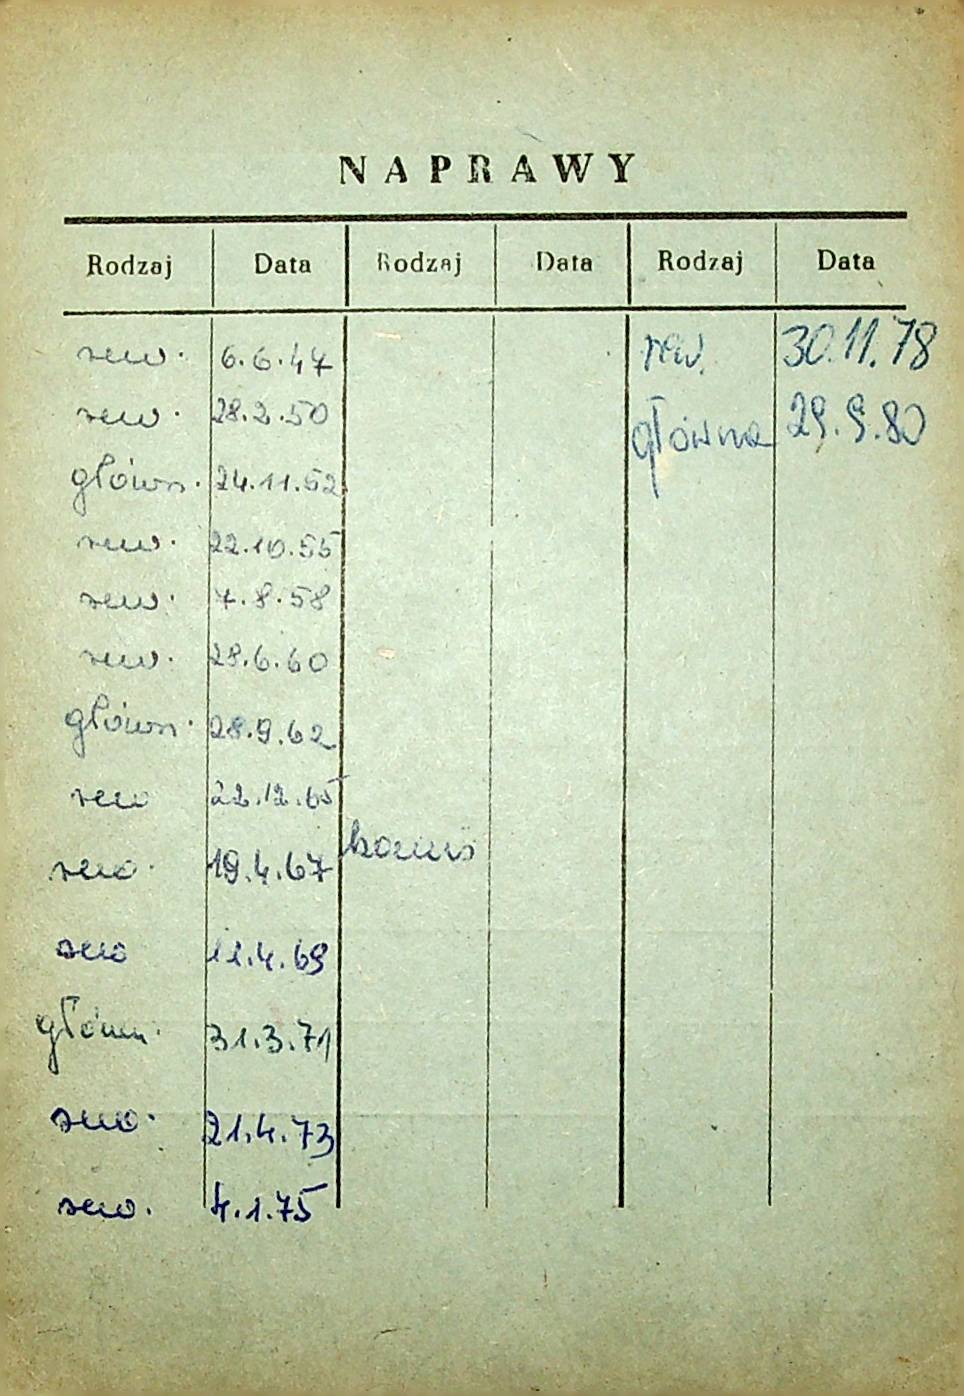 NAPRAWY
Rodzaj Data Rodzaj Data Rodzaj Data
rew. 6.6.47 rew. 30.11.78
rew. 28.2.50 główna 29.9.80
główn. 24.11.52
rew. 22.10.55
rew. 7.8.58
rew. 28.6.60
główn. 28.9.62
rew 22.12.65
rew. 19.4.67
rew 11.4.69
główn. 31.3.71
rew. 21.4.73
rew. 4.1.75